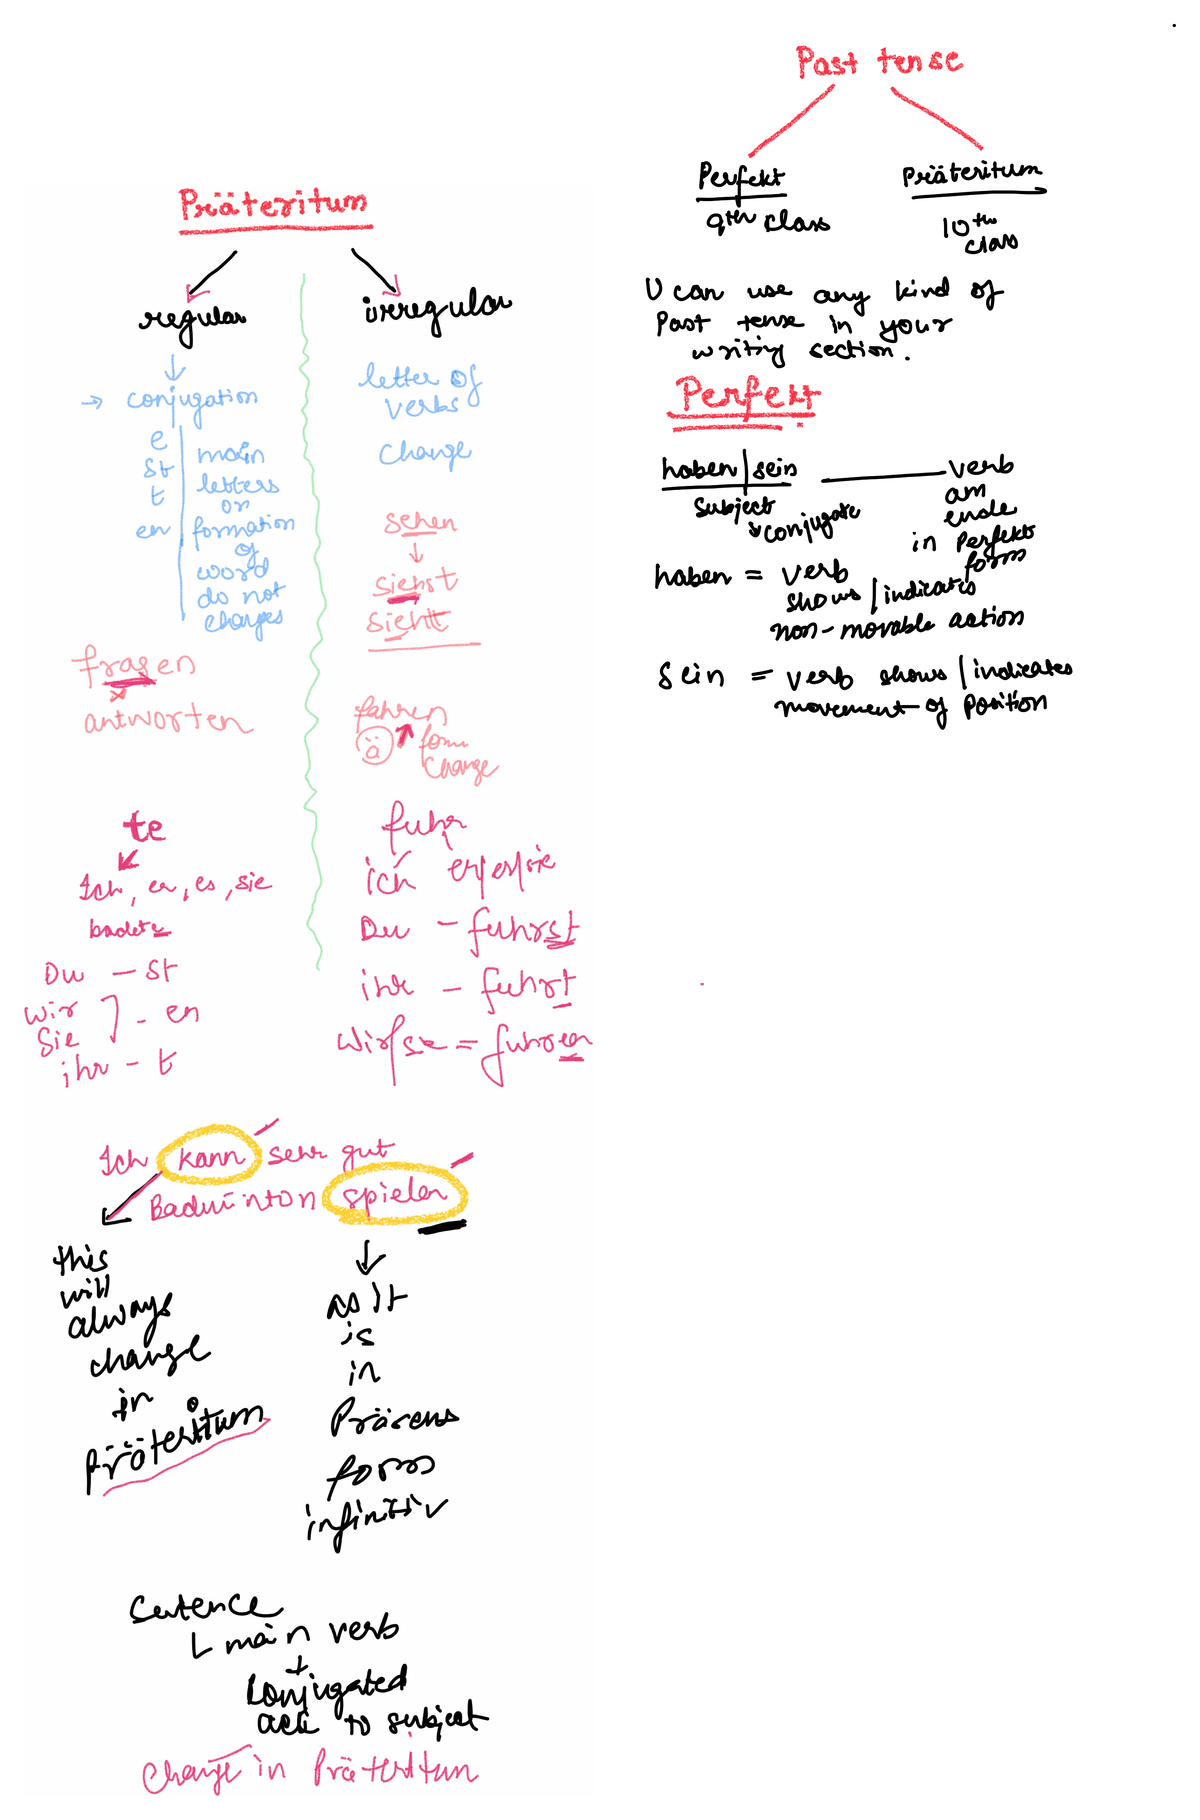 Past tense
Perfekt
9th class
Präteritum
10th
class
U can use any kind of
Past tense in your
writing section.
Perfekt
haben | sein
subject
conjugate
verb
am
ende
in Perfekt
form
haben = verb
shows / indicates
non-movable action
sein = verb shows / indicates
movement of position
Präteritum
regular
→ conjugation
e
st
t
en
main
letters
or
formation
of
word
do not
changes
fragen
antworten
te
Ich, er, es, sie
badete
Du - st
wir
Sie ] - en
ihr - t
irregular
letter of
verbs
change
sehen
siehst
sieht
fahren
ä
form
change
fuhr
ich er/es/sie
Du - fuhrst
ihr - fuhrt
wir/sie = fuhren
Ich kann sehr gut
Badminton spielen
this
will
always
change
in
Präteritum
as it
is
in
Präsens
form
infinitiv
Sentence
main verb
+
conjugated
acc to subject
Change in Präteritum